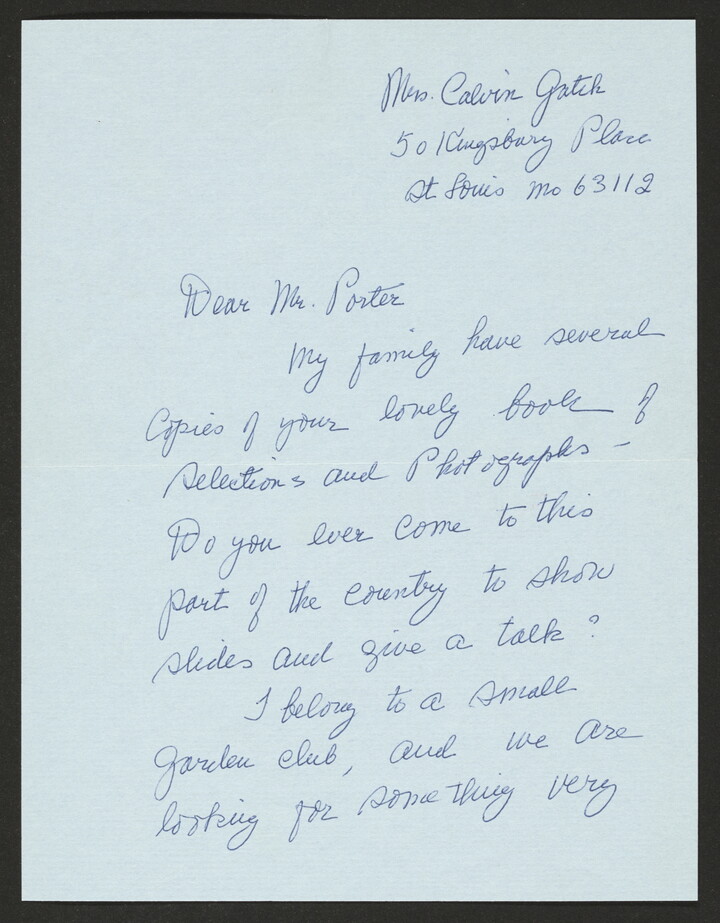 Mrs. Calvin Gatch
50 Kingsbury Place
St Louis Mo 63112
Dear Mr. Porter
My family have several
Copies of your lovely book of
selections and Photographs -
Do you ever come to this
part of the country to show
slides and give a talk?
I belong to a small
garden club, and we are
looking for something very